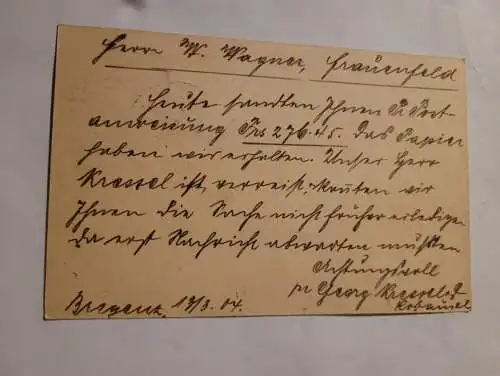 Herrn W. Wagner, Frauenfeld
Heute sandten Ihnen p Post-
anweisung Frs 276.45. Das Papier
haben wir erhalten. Unser Herr
Kressel ist verreist, konnten wir
Ihnen die Sache nicht früher erledigen
da erst Nachricht abwarten mußten
Achtungsvoll
pr Georg
Bregenz, 13/3. 04.